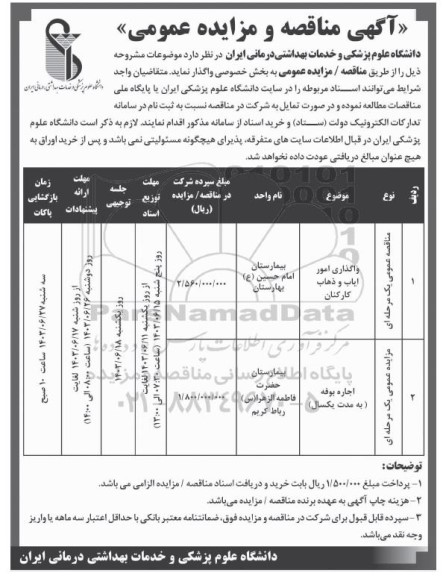 «آگهی مناقصه و مزایده عمومی»
دانشگاه علوم پزشکی و خدمات بهداشتی درمانی ایران
دانشگاه علوم پزشکی و خدمات بهداشتی‌درمانی ایران در نظر دارد موضوعات مشروحه
ذیل را از طریق مناقصه / مزایده عمومی به بخش خصوصی واگذار نماید. متقاضیان واجد
شرایط می‌توانند اسناد مربوطه را در سایت دانشگاه علوم پزشکی ایران یا پایگاه ملی
مناقصات مطالعه نموده و در صورت تمایل به شرکت در مناقصه نسبت به ثبت نام در سامانه
تدارکات الکترونیک دولت (ستاد) و خرید اسناد از سامانه مذکور اقدام نمایند. لازم به ذکر است دانشگاه علوم
پزشکی ایران در قبال اطلاعات سایت های متفرقه، پذیرای هیچگونه مسئولیتی نمی باشد و پس از خرید اوراق به
هیچ عنوان مبالغ دریافتی عودت داده نخواهد شد.
ردیف
نوع
موضوع
نام واحد
مبلغ سپرده شرکت در مناقصه / مزایده (ریال)
مهلت توزیع اسناد
جلسه توجیهی
مهلت ارائه پیشنهادات
زمان بازگشایی پاکات
۱
مناقصه عمومی یک مرحله ای
واگذاری امور ایاب و ذهاب کارکنان
بیمارستان امام حسین (ع) بهارستان
۲/۵۶۰/۰۰۰/۰۰۰
۲
مزایده عمومی یک مرحله ای
اجاره بوفه ( به مدت یکسال)
بیمارستان حضرت فاطمه الزهرا(س) رباط کریم
۱/۸۰۰/۰۰۰/۰۰۰
از روز یکشنبه ۱۴۰۳/۰۶/۱۱ لغایت
روز پنج شنبه ۱۴۰۳/۰۶/۱۵ (ساعت ۰۷:۳۰ الی ۱۳:۰۰)
روز یکشنبه ۱۴۰۳/۰۶/۱۸
از روز شنبه ۱۴۰۳/۰۶/۱۷ لغایت
روز دوشنبه ۱۴۰۳/۰۶/۲۶ (ساعت ۰۸:۰۰ الی ۱۴:۰۰)
سه شنبه ۱۴۰۳/۰۶/۲۷ ساعت ۱۰ صبح
ParsNamadData
مرکز فرآوری اطلاعات پارس نماد داده ها
پایگاه اطلاع رسانی مناقصه و مزایده
توضیحات:
۱– پرداخت مبلغ ۱/۵۰۰/۰۰۰ ریال بابت خرید و دریافت اسناد مناقصه / مزایده الزامی می باشد.
۲–هزینه چاپ آگهی به عهده برنده مناقصه / مزایده می‌باشد.
۳–سپرده قابل قبول برای شرکت در مناقصه و مزایده فوق، ضمانتنامه معتبر بانکی با حداقل اعتبار سه ماهه یا واریز
وجه نقد می‌باشد.
دانشگاه علوم پزشکی و خدمات بهداشتی درمانی ایران